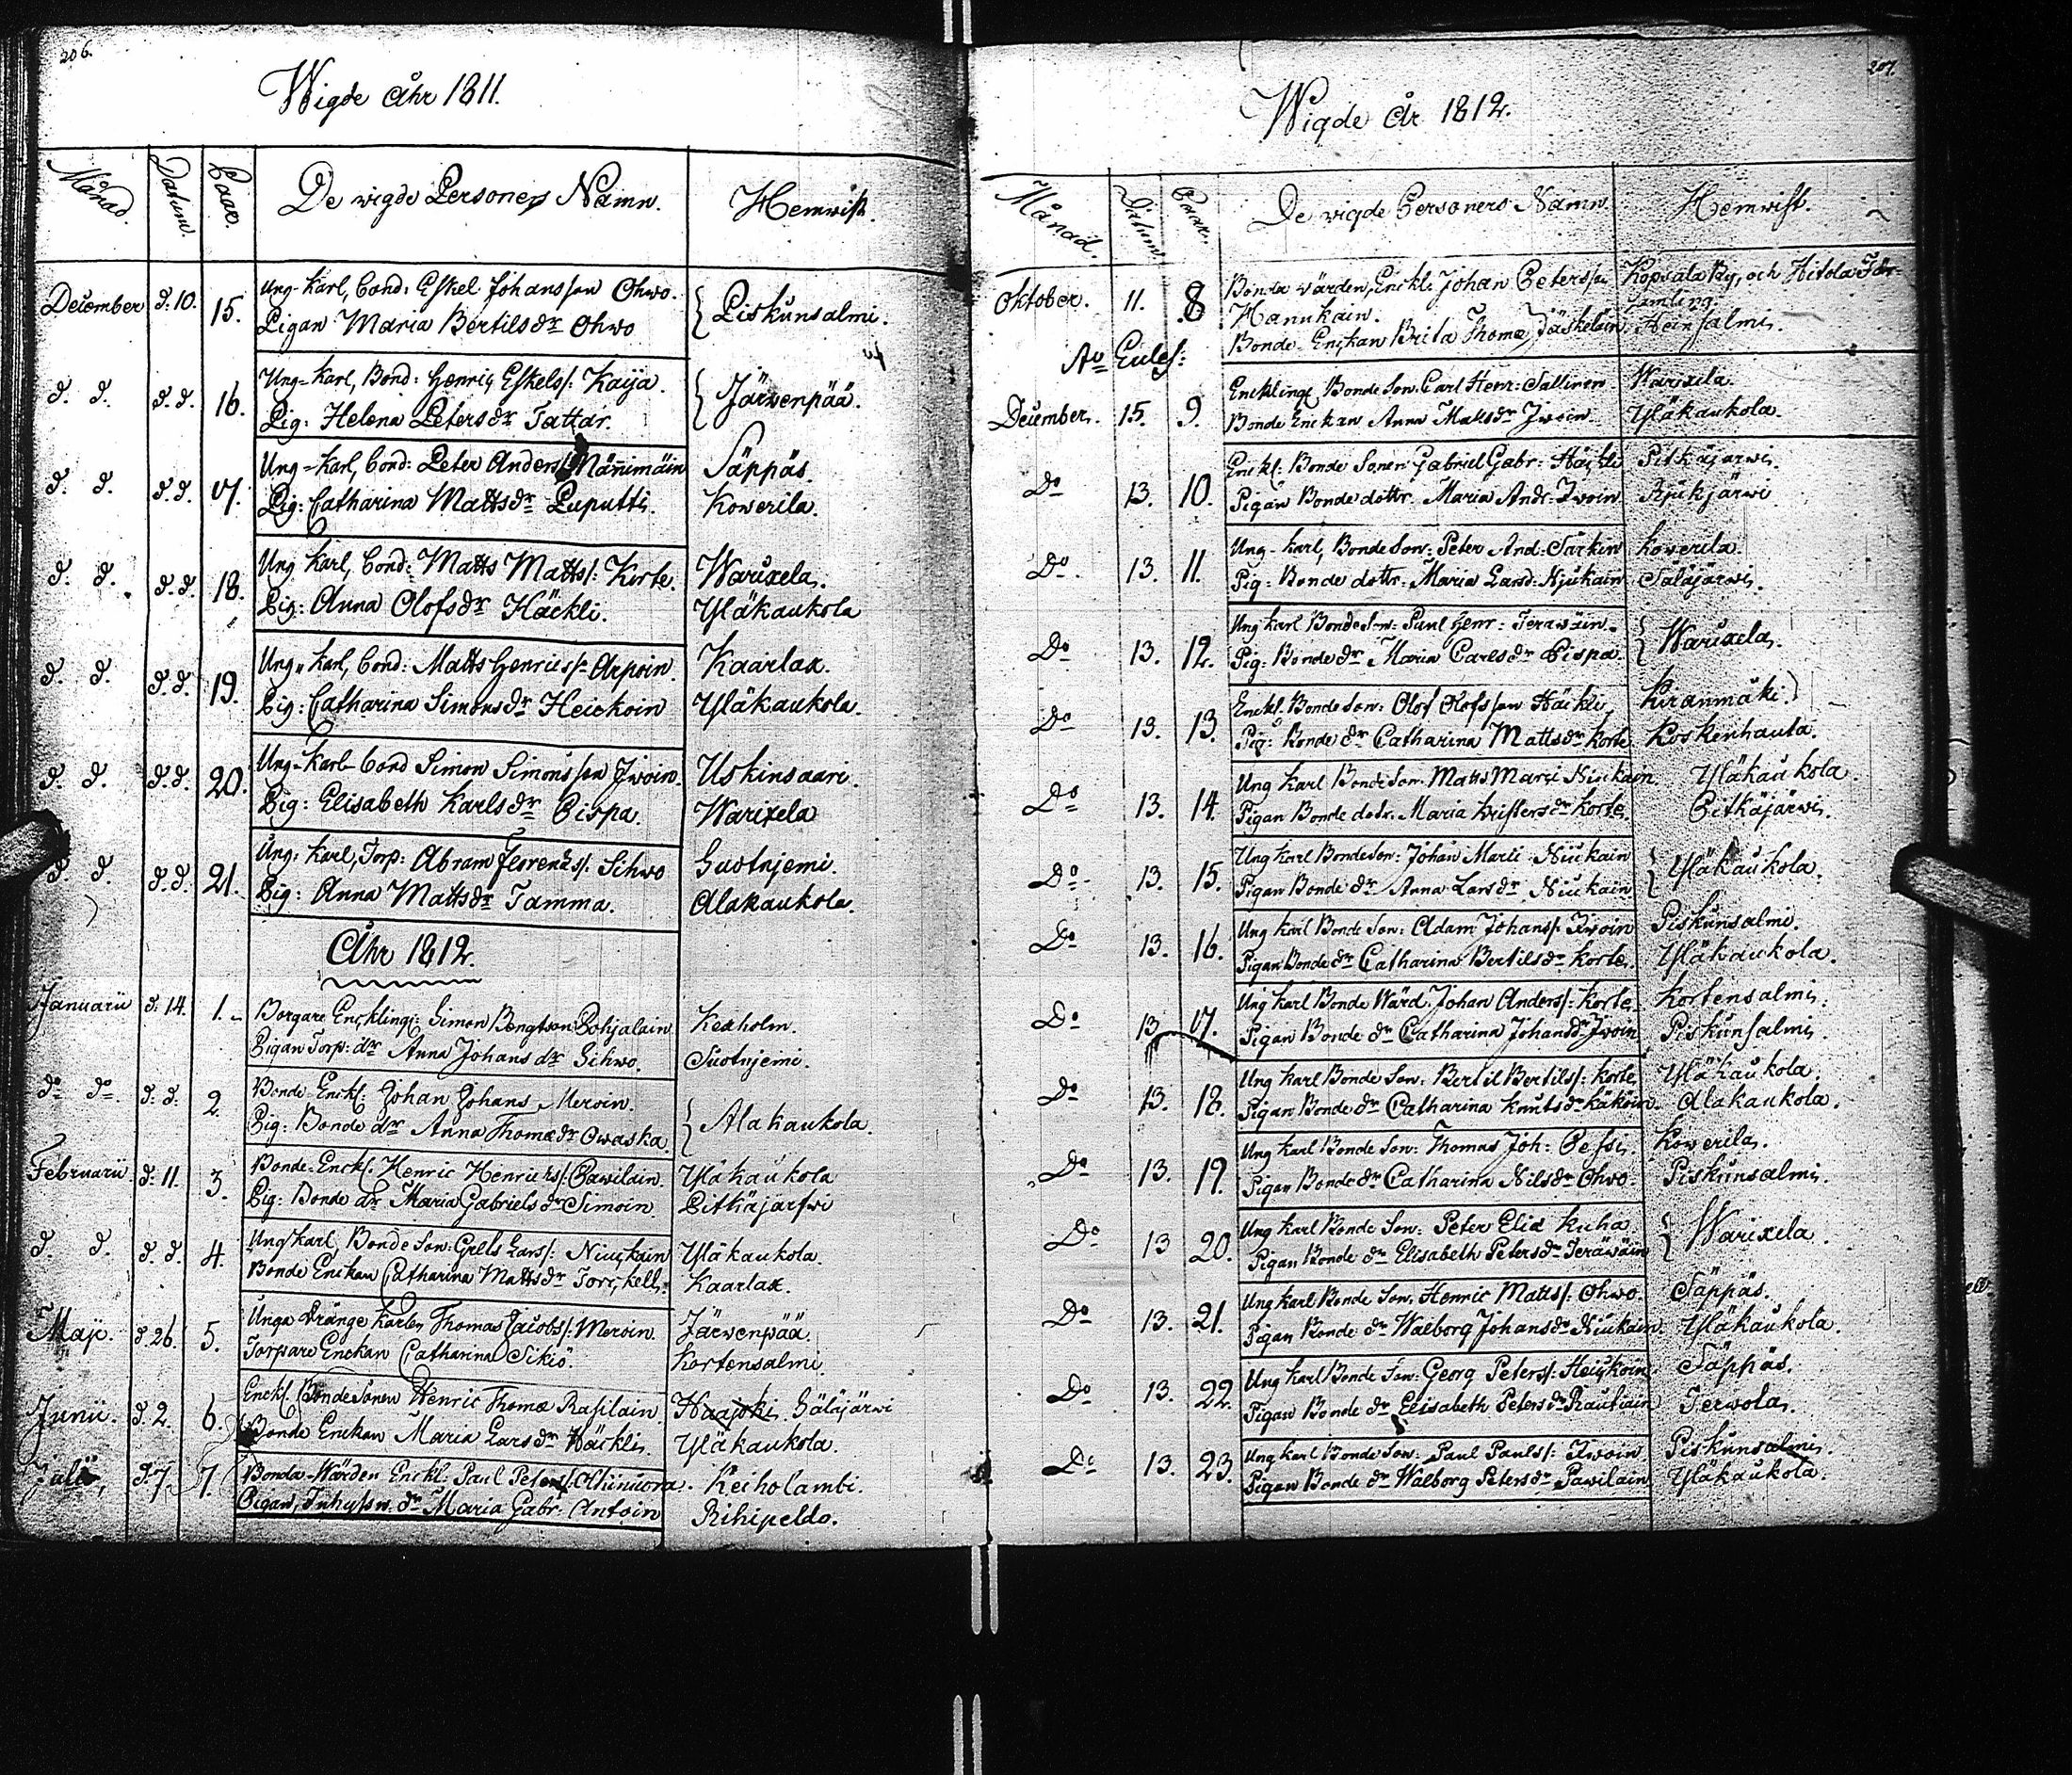 206.
Wigde åhr 1811.
Månad. Datum. Paar. De wigde Personers Namn. Hemwist.
December d. 10. 15. Ung-Karl, Bond: Eskel Johansson Ohwo. Piskunsalmi.
Pigan Maria Bertilsdr Ohwo
d. d. d. d. 16. Ung-Karl, Bond: Henric Eskelss: Kaija. Järwenpää.
Pig: Helena Petersdr Tattar.
d. d. d. d. 17. Ung-Karl, Bond: Peter Anderss: Nänimäin Säppäs.
Pig: Catharina Mattsdr Puputti. Kowerila.
d. d. d. d. 18. Ung Karl, Bond: Matts Mattss: Korte. Warixela.
Pig: Anna Olofsdr Häckli. Yläkaukola
d. d. d. d. 19. Ung-Karl, Bond: Matts Henricss: Arpoin. Kaarlax.
Pig: Catharina Simonsdr Heickoin Yläkaukola.
d. d. d. d. 20. Ung-Karl Bond Simon Simonsson Iwoin. Uskinsaari.
Pig: Elisabeth Karlsdr Pispa. Warixela
d. d. d. d. 21. Ung: Karl, Torp: Abram Florents: Sihwo Suotnjemi.
Pig: Anna Mattsdr Tamma. Alakaukola.
Åhr 1812.
Januarii d. 14. 1. Borgare Enckling: Simon Bengtson Pohjalain Kexholm.
Pigan Torp: dr Anna Johans dr Sihwo. Suotnjemi.
do do. d. d. 2. Bonde Enckl: Johan Johans Meroin. Alakaukola.
Pig: Bonde dr Anna Thomædr Owaska
Februarii d. 11. 3. Bonde Enckl. Henric Henricss: Pawilain. Yläkaukola
Pig: Bonde dr Maria Gabriels dr Simoin. Pitkäjärfwi
d. d. d. d. 4. Ung Karl, Bonde Son: Grels Larss: Niuckain Yläkaukola.
Bonde Enckan Catharina Mattsdr Torckell: Kaarlax.
Maji. d. 26. 5. Unga Dränge Karlen Thomas Jacobs: Meroin. Järwenpää.
Torpare Enckan Catharina Sikiö. Kortensalmi
Junii. d. 2. 6. Enckl. Bonde Sonen Henric Thomæ Rasilain. Haapoki Säläjärwi
Bonde Enckan Maria Lars dr Häckli. Yläkaukola.
Julii, d. 7. 7. Bonda-Wärden Enckl. Paul Peters: Keiholambi.
Pigan, Inhyssn. dr Maria Gabr. Antoin Rihipeldo.
207.
Wigde år 1812.
Månad. Datum. Paar. De wigde Personers Namn. Hemwist.
Oktober. 11. 8 Bonde wärden, Enckl. Johan Petersson Kopsala By, och Hitola För-
Hanukain. samling.
Bonde-Enckan Brita Thomæ Jäskeläin. Heinsalmi.
December. 15. 9. Encklingen Bonde Son. Carl Henr: Sallinen Warixela.
Bonde Enckan Anna Mattsdr Iwoin. Yläkaukola.
Do 13. 10. Enckl: Bonde Sonen Gabriel Gabr: Häckli Pitkäjärwi.
Pigan Bonde dottr. Maria Andr: Iwoin Rjukjärwi
Do 13. 11. Ung-Karl, Bonde Son: Peter And: Särkin Kowerila.
Pig: Bonde dottr: Maria Larsd: Njukain Säläjärwi.
Do 13. 12. Ung Karl Bonde Son: Paul Henr: Teräwäin. Warixela.
Pig: Bonde dr Maria Carlsdr Pispa.
Do 13. 13. Enckl. Bonde Son: Olof Olofsson Häckli, Kiranmäki
Pig: Bonde dr Catharina Mattsdr Korte Koskenhauta.
Do 13. 14. Ung Karl Bonde Son. Matts Marti Niukain. Yläkaukola.
Pigan Bonde dotr. Maria Kristersdr Korte. Pitkäjärwi.
Do 13. 15. Ung Karl Bonde Son: Johan Marti Niukain Yläkaukola.
Pigan Bonde dr Anna Larsdr Niukain
Do 13. 16. Ung karl Bonde Son: Adam Johanss: Iwoin Piskunsalmi.
Pigan Bonde dr Catharina Bertilsdr Korte. Yläkaukola.
Do 13 17. Ung Karl Bonde Wärd. Johan Anderss: Korte. Kortensalmi.
Pigan Bonde dr Catharina Johansdr Iwoin Piskunsalmi.
Do 13. 18. Ung Karl Bonde Son: Bertil Bertilss: Korte Yläkaukola
Pigan Bonde dr Catharina Knutsdr Käköin. Alakaukola.
Do 13. 19. Ung Karl Bonde Son: Thomas Joh: Pessi. Kowerila.
Pigan Bonde dr Catharina Nilsdr Ohwo. Piskunsalmi.
Do 13 20. Ung Karl Bonde Son: Peter Elia Kuha Warixela.
Pigan Bonde dr Elisabeth Petersdr Teräwäin
Do 13. 21. Ung Karl Bonde Son. Henric Matts: Ohwo. Säppäs.
Pigan Bonde dr Walborg Johansdr Niukain Yläkaukola.
Do 13. 22. Ung Karl Bonde Son: Georg Peters: Heickoin Säppäs.
Pigan Bonde dr Elisabeth Petersdr Rautiain Terwola.
Do 13. 23. Ung Karl Bonde Son: Paul Pauls: Iwoin Piskunsalmi.
Pigan Bonde dr Walborg Petersdr Pawilain Yläkaukola.